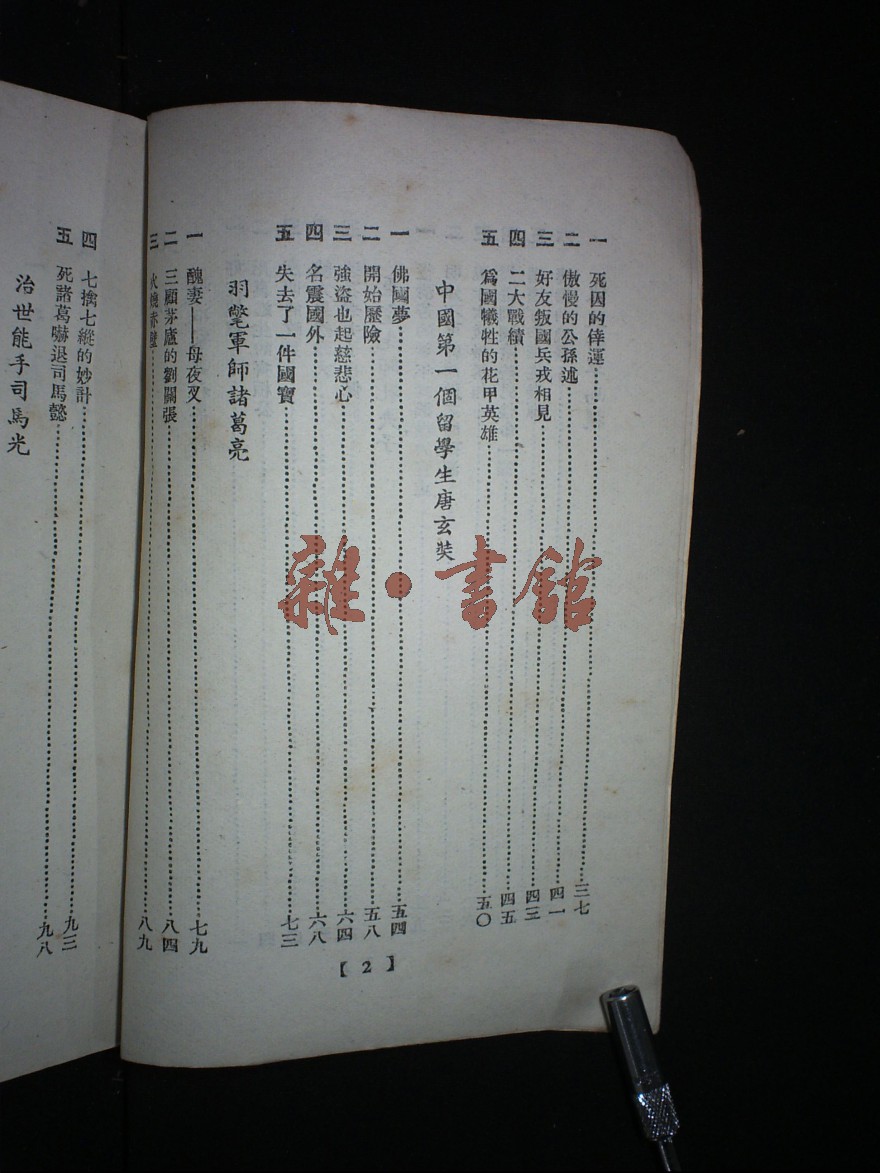 一 死囚的倖運 三七
二 傲慢的公孫述 四一
三 好友叛國兵戎相見 四三
四 二大戰績 四五
五 爲國犧牲的花甲英雄 五〇
中國第一個留學生唐玄奘
一 佛國夢 五四
二 開始歷險 五八
三 強盜也起慈悲心 六四
四 名震國外 六八
五 失去了一件國寶 七三
羽氅軍師諸葛亮
一 醜妻——母夜叉 七九
二 三顧茅廬的劉關張 八四
三 火燒赤壁 八九
【2】
四 七擒七縱的妙計 九三
五 死諸葛嚇退司馬懿 九八
治世能手司馬光
雜·書館